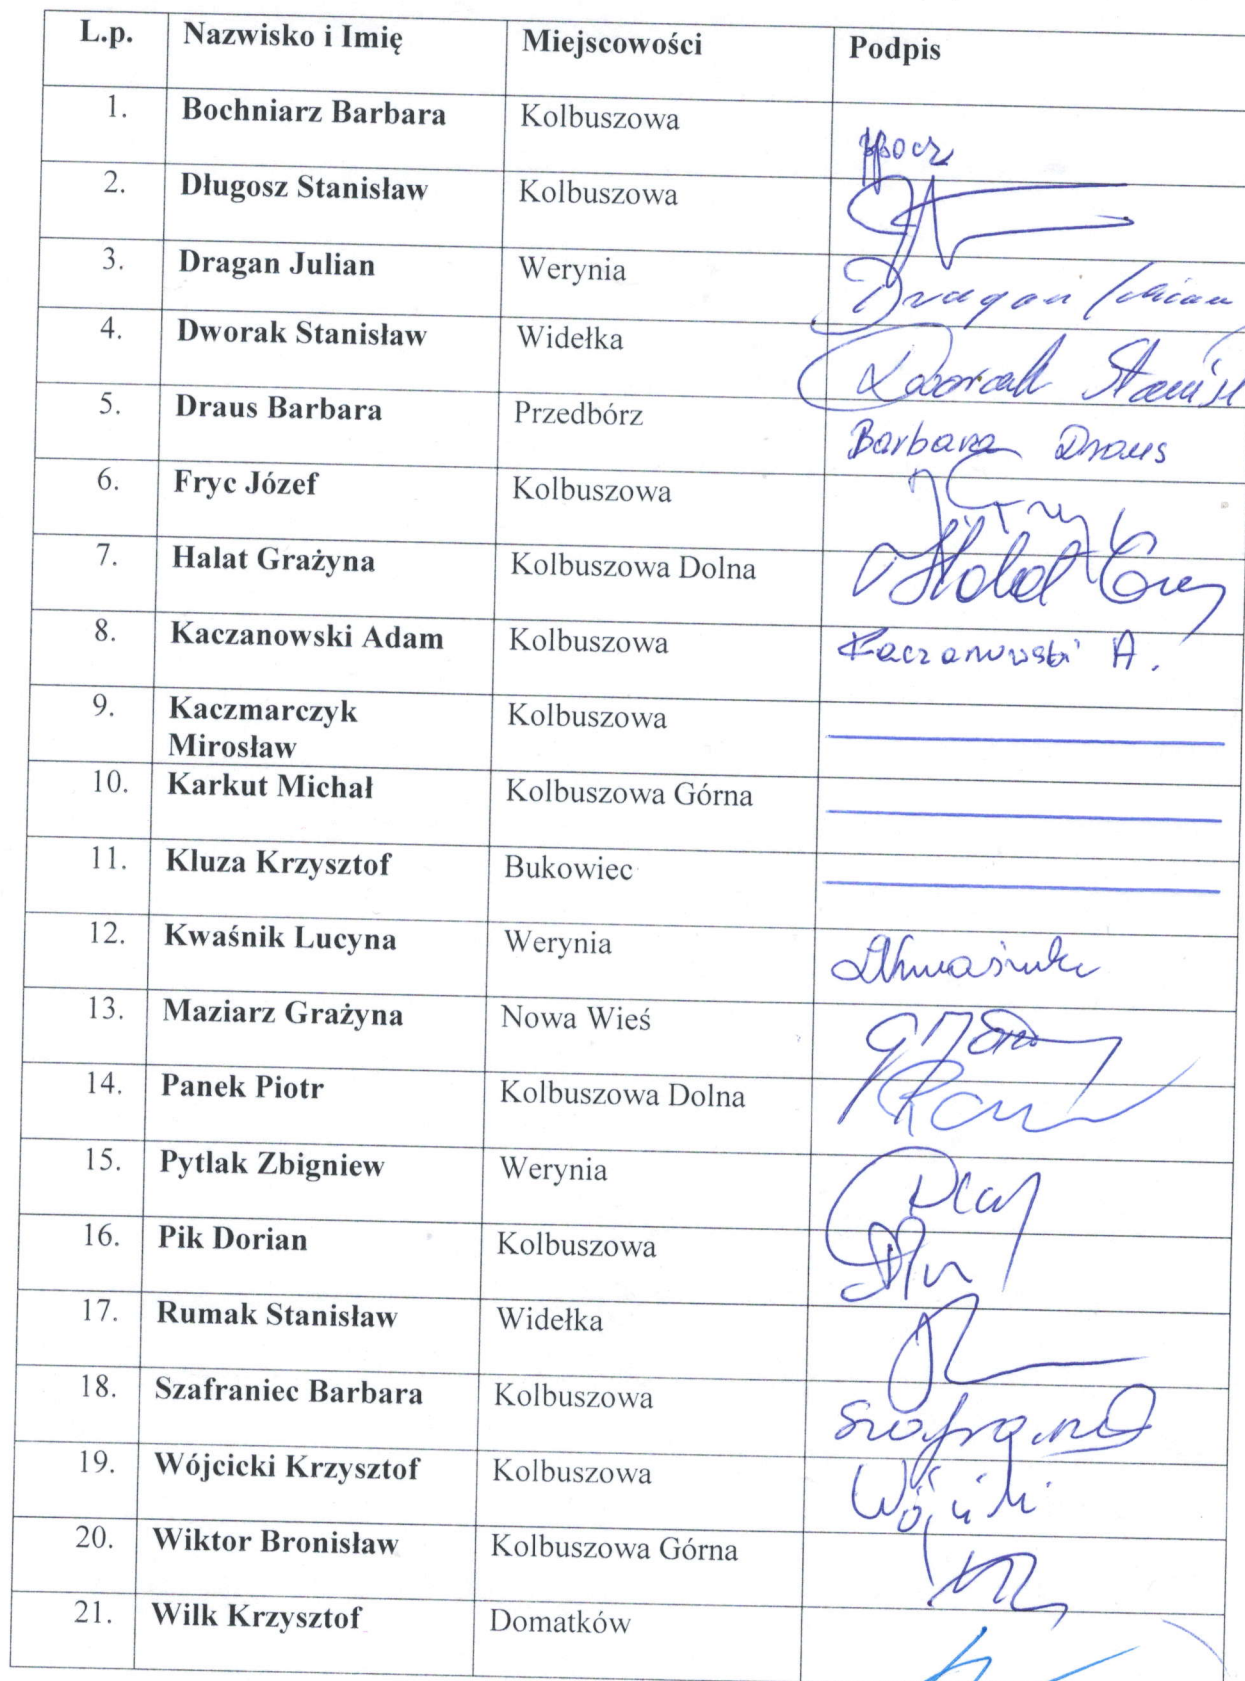 L.p. Nazwisko i Imię Miejscowości Podpis
1. Bochniarz Barbara Kolbuszowa
2. Długosz Stanisław Kolbuszowa
3. Dragan Julian Werynia Dragan
4. Dworak Stanisław Widełka Dworak Stanisł
5. Draus Barbara Przedbórz Barbara Draus
6. Fryc Józef Kolbuszowa
7. Halat Grażyna Kolbuszowa Dolna Halat
8. Kaczanowski Adam Kolbuszowa Kaczanowski A.
9. Kaczmarczyk Kolbuszowa
Mirosław
10. Karkut Michał Kolbuszowa Górna
11. Kluza Krzysztof Bukowiec
12. Kwaśnik Lucyna Werynia
13. Maziarz Grażyna Nowa Wieś
14. Panek Piotr Kolbuszowa Dolna
15. Pytlak Zbigniew Werynia
16. Pik Dorian Kolbuszowa
17. Rumak Stanisław Widełka
18. Szafraniec Barbara Kolbuszowa
19. Wójcicki Krzysztof Kolbuszowa
20. Wiktor Bronisław Kolbuszowa Górna
21. Wilk Krzysztof Domatków